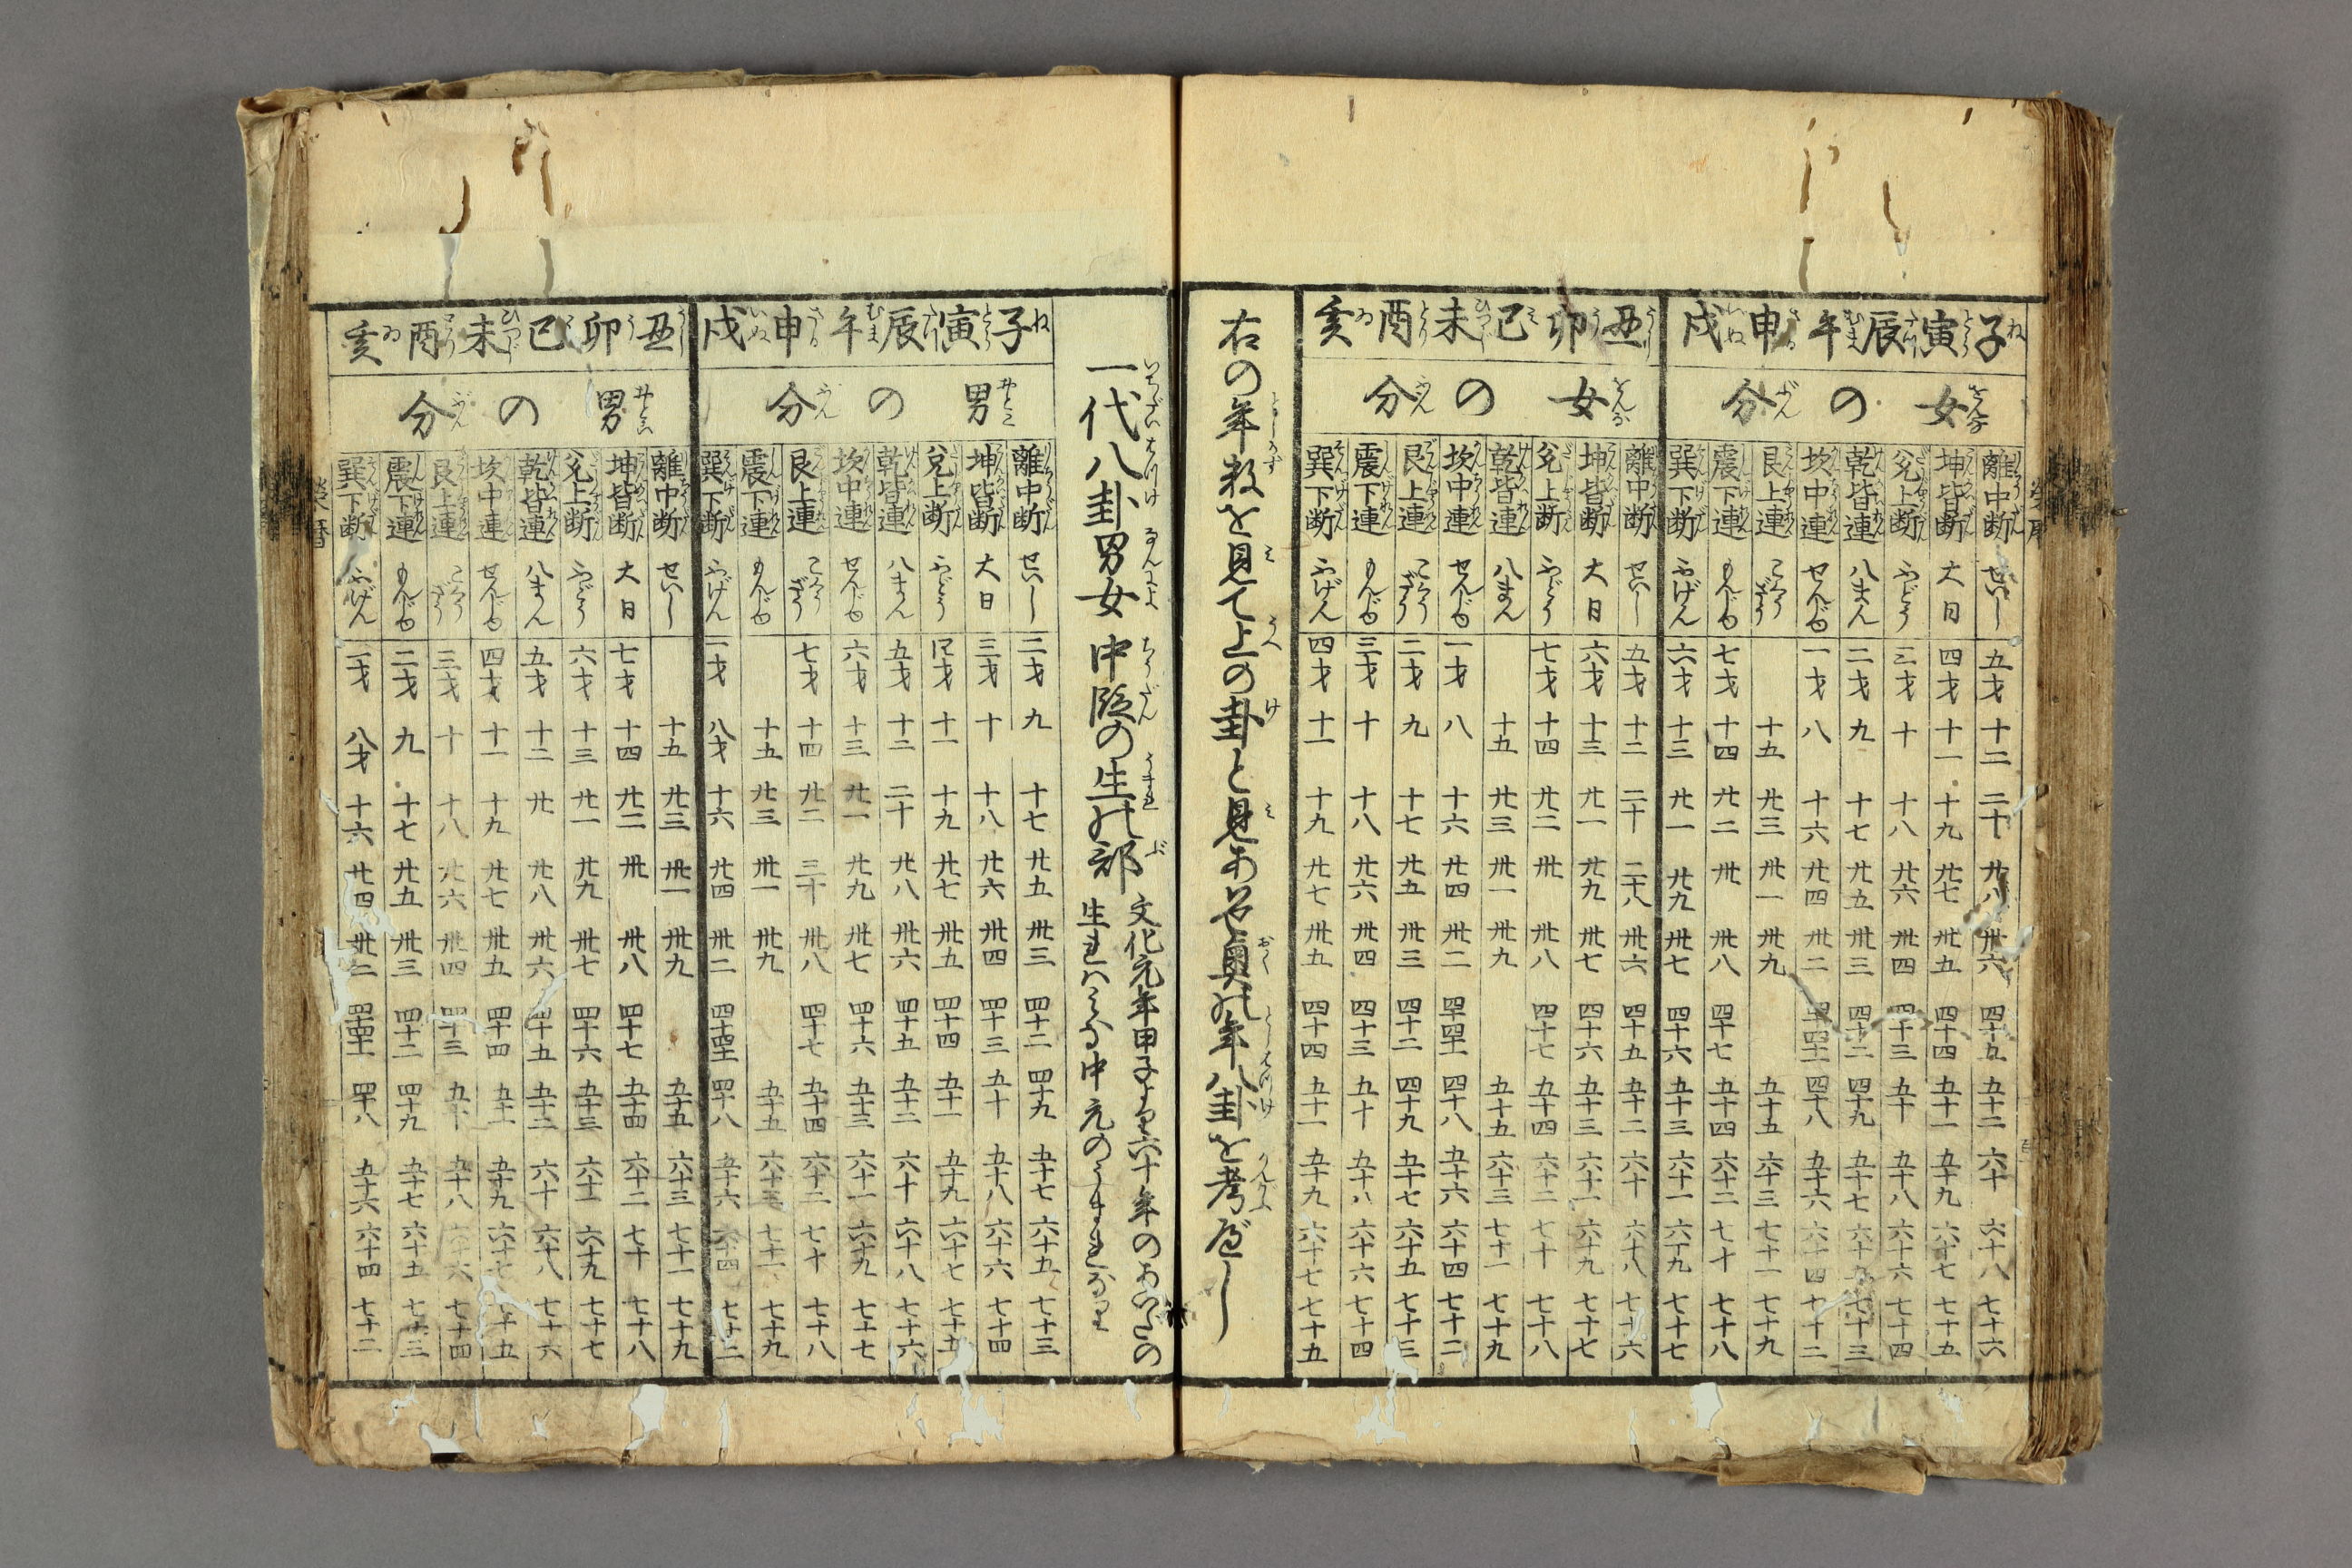 子ね寅とら辰たつ午むま申さる戌いぬ
女をんなの分ぶん
離中断 せいし 五才 十二 二十 廿八 卅六 四十五 五十二 六十 六十八 七十六
坤皆断 大日 四才 十一 十九 廿七 卅五 四十四 五十一 五十九 六十七 七十五
兌上断 ふどう 三才 十 十八 廿六 卅四 四十三 五十 五十八 六十六 七十四
乾皆連 八まん 二才 九 十七 廿五 卅三 四十二 四十九 五十七 六十五 七十三
坎中連 せんじゆ 一才 八 十六 廿四 卅二 四十 四十一 四十八 五十六 六十四 七十二
艮上連 こくうざう 十五 廿三 卅一 卅九 五十五 六十三 七十一 七十九
震下連 もんじゆ 七才 十四 廿二 卅 卅八 四十七 五十四 六十二 七十 七十八
巽下断 ふげん 六才 十三 廿一 廿九 卅七 四十六 五十三 六十一 六十九 七十七
丑うし卯う巳み未ひつじ酉とり亥ゐ
女をんなの分ぶん
離中断 せいし 五才 十二 二十 二十八 卅六 四十五 五十二 六十 六十八 七十六
坤皆断 大日 六才 十三 廿一 廿九 卅七 四十六 五十三 六十一 六十九 七十七
兌上断 ふどう 七才 十四 廿二 卅 卅八 四十七 五十四 六十二 七十 七十八
乾皆連 八まん 十五 廿三 卅一 卅九 五十五 六十三 七十一 七十九
坎中連 せんじゆ 一才 八 十六 廿四 卅二 四十 四十一 四十八 五十六 六十四 七十二
艮上連 こくうざう 二才 九 十七 廿五 卅三 四十二 四十九 五十七 六十五 七十三
震下連 もんじゆ 三才 十 十八 廿六 卅四 四十三 五十 五十八 六十六 七十四
巽下断 ふげん 四才 十一 十九 廿七 卅五 四十四 五十一 五十九 六十七 七十五
右の年数を見て上の卦と見あはせ奥の年八卦を考ふべし
一代八卦男女中段の生れ部
文化元年甲子より六十年のあいだの
生れはみな中元のうまれなり
子ね寅とら辰たつ午むま申さる戌いぬ
男おとこの分ぶん
離中断 せいし 二才 九 十七 廿五 卅三 四十二 四十九 五十七 六十五 七十三
坤皆断 大日 三才 十 十八 廿六 卅四 四十三 五十 五十八 六十六 七十四
兌上断 ふどう 四才 十一 十九 廿七 卅五 四十四 五十一 五十九 六十七 七十五
乾皆連 八まん 五才 十二 二十 廿八 卅六 四十五 五十二 六十 六十八 七十六
坎中連 せんじゆ 六才 十三 廿一 廿九 卅七 四十六 五十三 六十一 六十九 七十七
艮上連 こくうざう 七才 十四 廿二 三十 卅八 四十七 五十四 六十二 七十 七十八
震下連 もんじゆ 十五 廿三 卅一 卅九 五十五 六十三 七十一 七十九
巽下断 ふげん 一才 八才 十六 廿四 卅二 四十 四十一 四十八 五十六 六十四 七十二
丑うし卯う巳み未ひつじ酉とり亥ゐ
男おとこの分ぶん
離中断 せいし 十五 廿三 卅一 卅九 五十五 六十三 七十一 七十九
坤皆断 大日 七才 十四 廿二 卅 卅八 四十七 五十四 六十二 七十 七十八
兌上断 ふどう 六才 十三 廿一 廿九 卅七 四十六 五十三 六十一 六十九 七十七
乾皆連 八まん 五才 十二 廿 廿八 卅六 四十五 五十二 六十 六十八 七十六
坎中連 せんじゆ 四才 十一 十九 廿七 卅五 四十四 五十一 五十九 六十七 七十五
艮上連 こくうざう 三才 十 十八 廿六 卅四 四十三 五十 五十八 六十六 七十四
震下連 もんじゆ 二才 九 十七 廿五 卅三 四十二 四十九 五十七 六十五 七十三
巽下断 ふげん 一才 八才 十六 廿四 卅二 四十 四十一 四十八 五十六 六十四 七十二